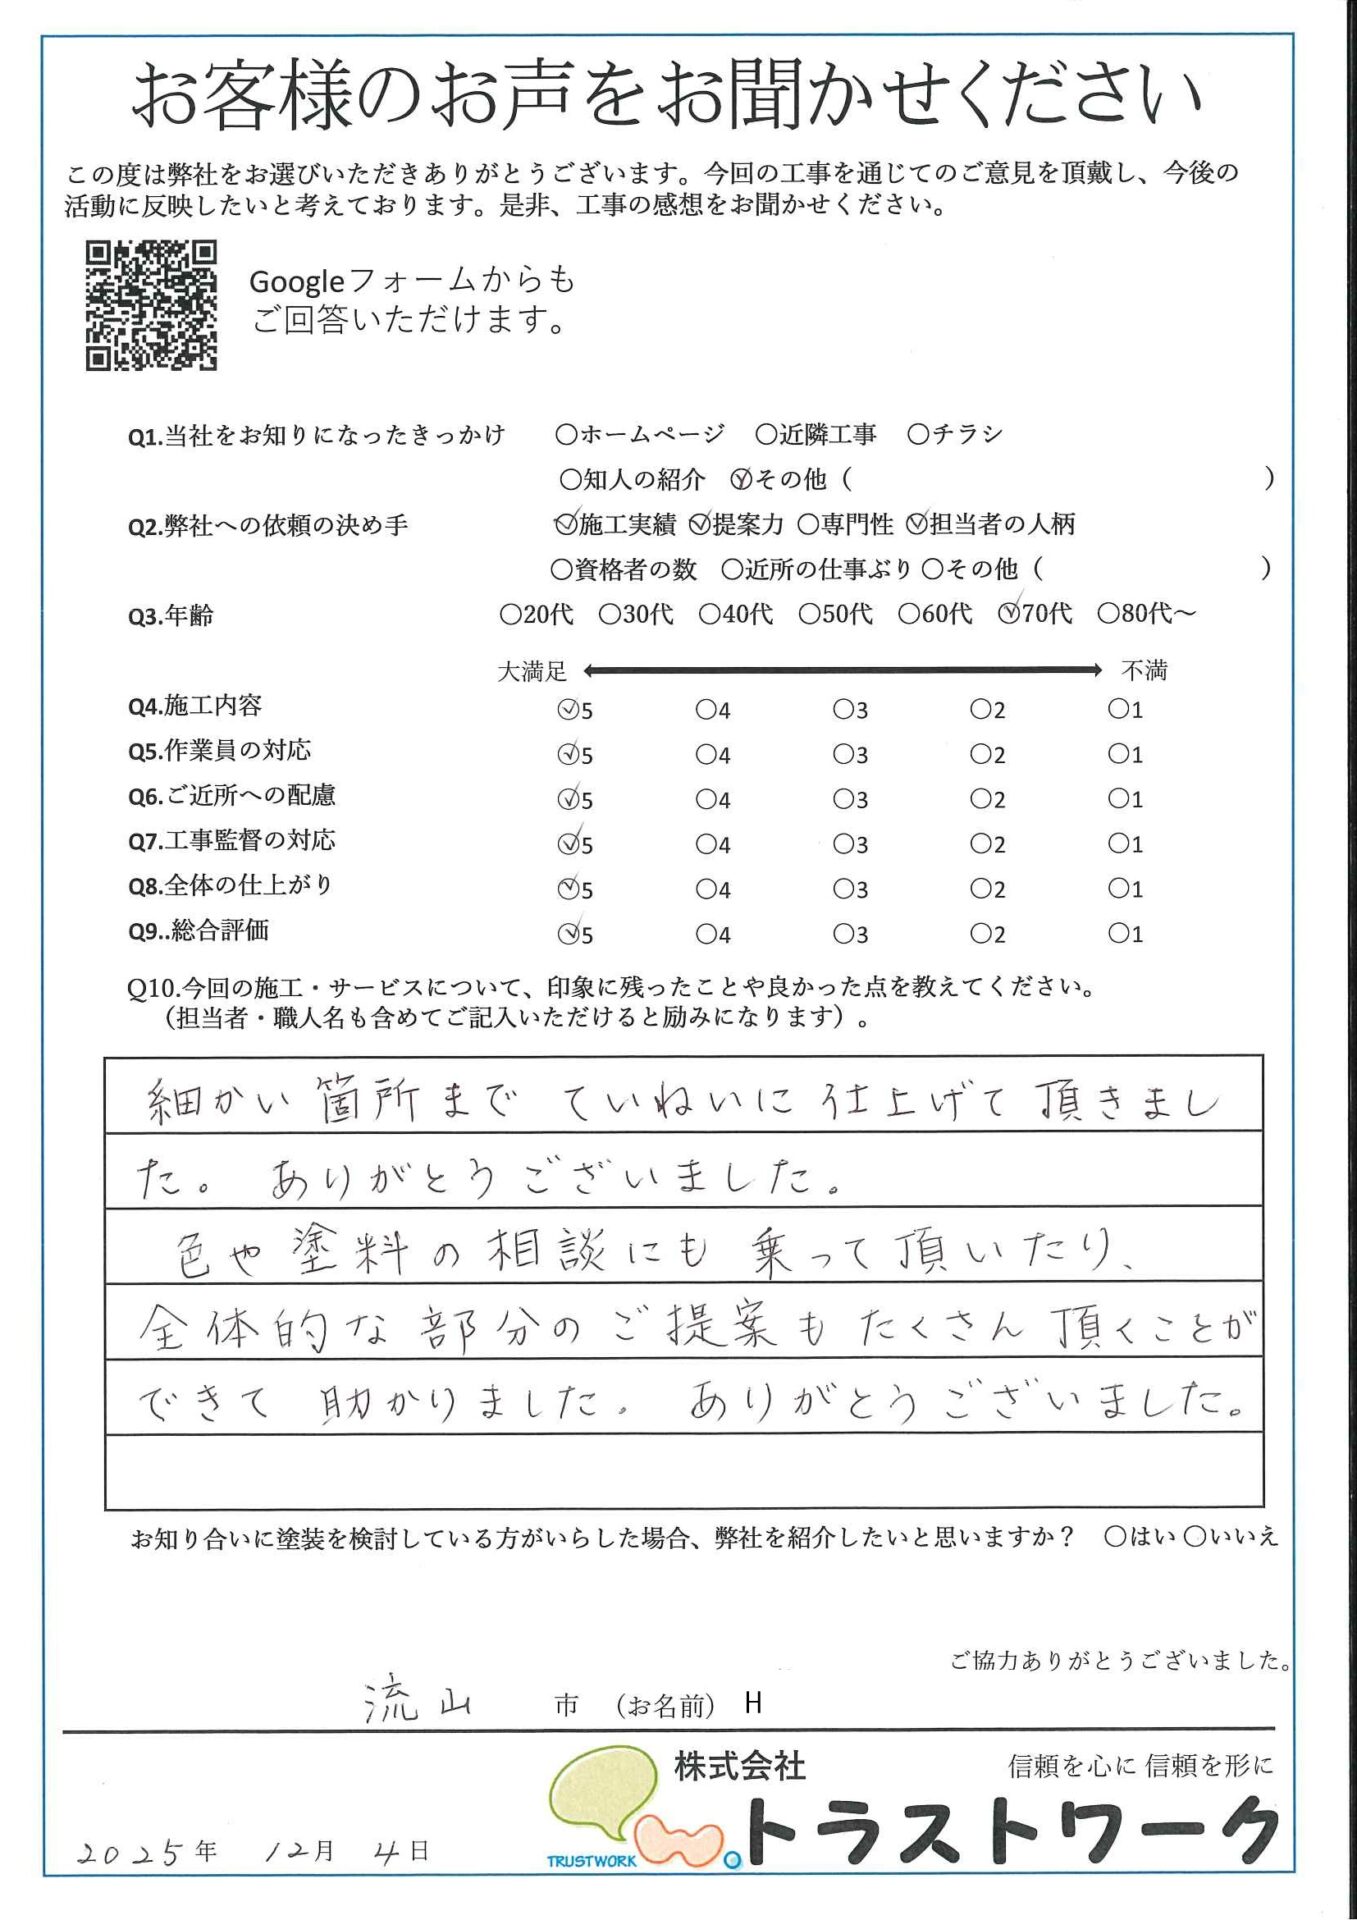 お客様のお声をお聞かせください
この度は弊社をお選びいただきありがとうございます。今回の工事を通じてのご意見を頂戴し、今後の
活動に反映したいと考えております。是非、工事の感想をお聞かせください。
Googleフォームからも
ご回答いただけます。
Q1.当社をお知りになったきっかけ ○ホームページ ○近隣工事 ○チラシ
○知人の紹介 ○その他（ ）
Q2.弊社への依頼の決め手 ○施工実績 ○提案力 ○専門性 ○担当者の人柄
○資格者の数 ○近所の仕事ぶり ○その他（ ）
Q3.年齢 ○20代 ○30代 ○40代 ○50代 ○60代 ○70代 ○80代～
大満足 不満
Q4.施工内容 ○5 ○4 ○3 ○2 ○1
Q5.作業員の対応 ○5 ○4 ○3 ○2 ○1
Q6.ご近所への配慮 ○5 ○4 ○3 ○2 ○1
Q7.工事監督の対応 ○5 ○4 ○3 ○2 ○1
Q8.全体の仕上がり ○5 ○4 ○3 ○2 ○1
Q9..総合評価 ○5 ○4 ○3 ○2 ○1
Q10.今回の施工・サービスについて、印象に残ったことや良かった点を教えてください。
（担当者・職人名も含めてご記入いただけると励みになります）。
細かい箇所まで ていねいに 仕上げて 頂きまし
た。 ありがとうございました。
色や塗料の相談にも 乗って頂いたり、
全体的な部分のご提案もたくさん頂くことが
できて 助かりました。 ありがとうございました。
お知り合いに塗装を検討している方がいらした場合、弊社を紹介したいと思いますか？ ○はい ○いいえ
ご協力ありがとうございました。
流山 市 （お名前） H
株式会社 信頼を心に 信頼を形に
トラストワーク
TRUSTWORK
2025年 12月 4日